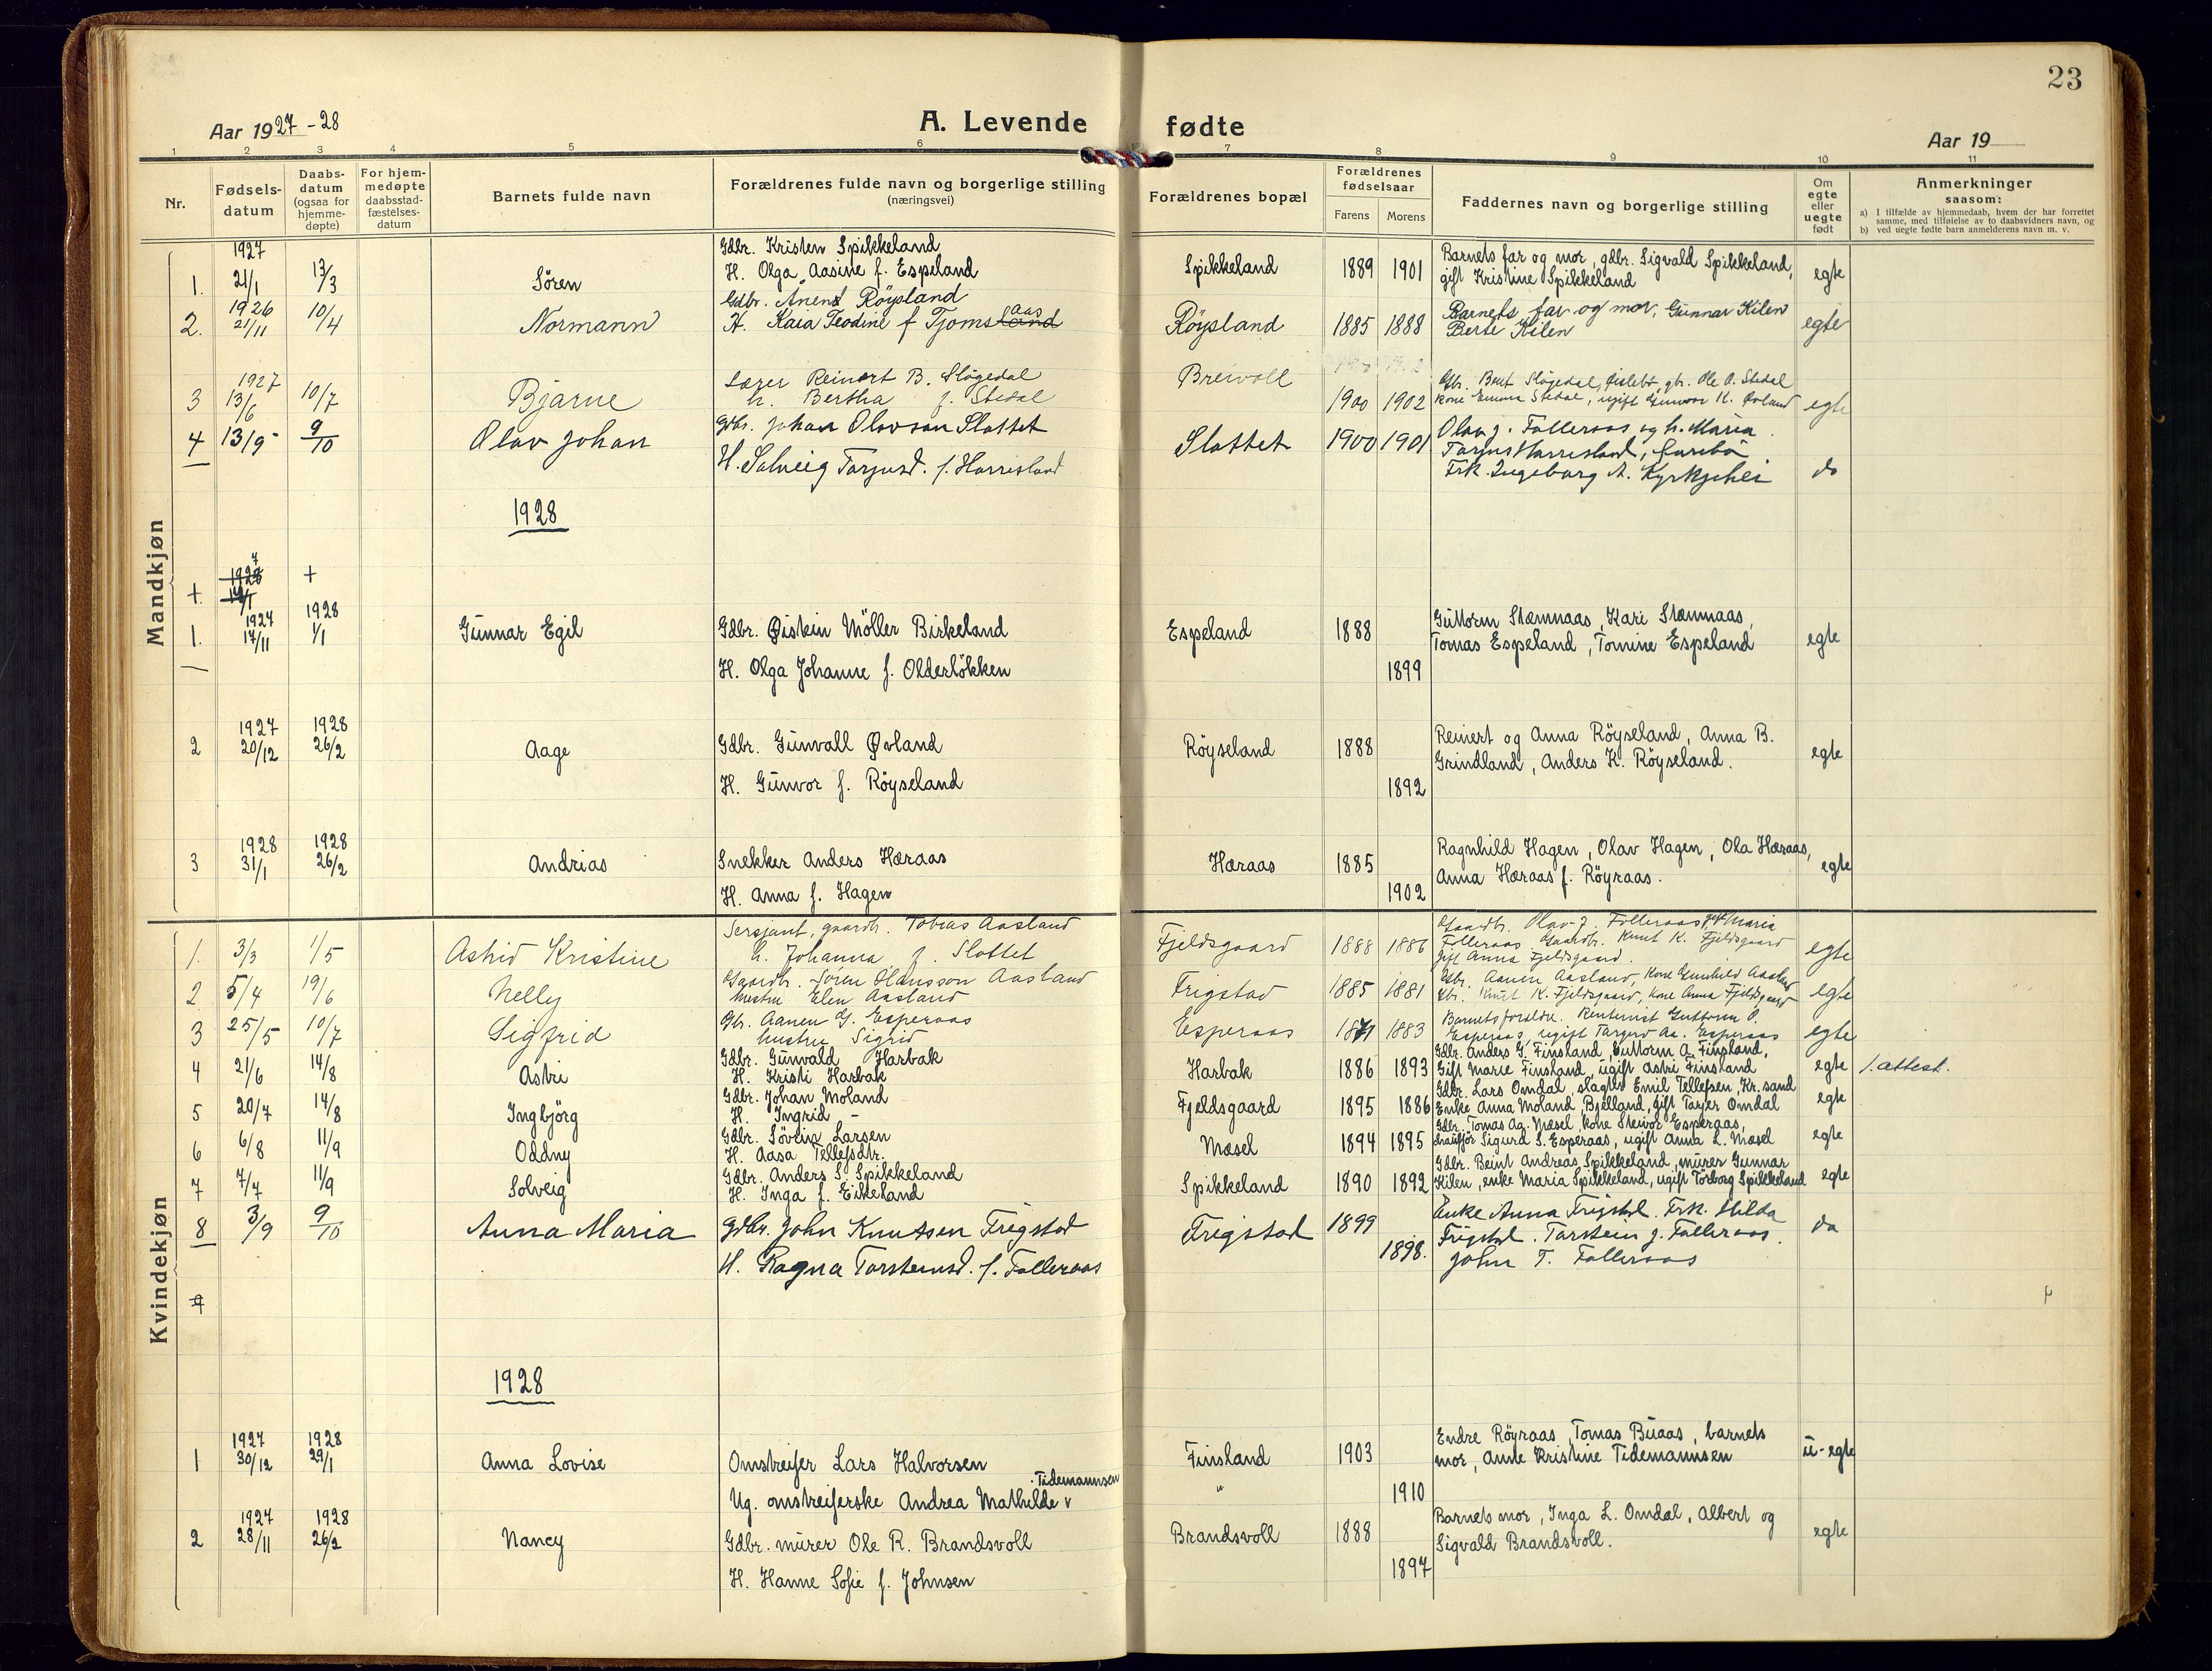 23
Aar 1927-28
A. Levende fødte
Aar 19
1 2 3 4 5 6 7 8 9 10 11
Nr.
Fødsels-
datum
Daabs-
datum
(ogsaa for
hjemme-
døpte)
For hjem-
medøpte
daabsstad-
fæstelses-
datum
Barnets fulde navn
Forældrenes fulde navn og borgerlige stilling
(næringsvei)
Forældrenes bopæl
Forældrenes
fødselsaar
Farens Morens
Faddernes navn og borgerlige stilling
Om
egte
eller
uegte
født
Anmerkninger
saasom:
a) I tilfælde av hjemmedaab, hvem der har forrettet
samme, med tilføielse av to daabsvidners navn, og
b) ved uegte fødte barn anmelderens navn m. v.
Mandkjøn
1927
1. 21/1 13/3 Sören
Gdbr. Kristen Spikkeland
H. Olga Aasine f. Espeland
Spikkeland 1889 1901
Barnets far og mor, gdbr. Sigvald Spikkeland,
gift Kristine Spikkeland
egte
1926
2. 21/11 10/4 Normann
Gdbr. Ånen Röysland
H. Kaia Teodine f Tjomsland aas
Röysland 1885 1888
Barnets far og mor, Gunnar Kilen
Berte Kilen
egte
1927
3 13/6 10/7 Bjarne
Reinert B. Sløgedal
h. Bertha f. Stedal
Breivoll 1900 1902
Gbr. Bent Sløgedal, Øislebø, gbr. Ole O. Stedal
kone Emma Stedal, ugift Gunvor K. Øvland
egte
4 13/9 9/10 Olav Johan
Gdbr. Johan Olavson Slottet
H. Solveig Tarjusd. f. Harrisland
Slottet 1900 1901
Olav J. Falleraas og h. Maria.
Tarjus Harrisland,
Frk. Ingeborg A. Kyrkjehei
do
1928
1927
+ 14/1 +
1927 1928
1. 17/11 1/1 Gunnar Egil
Gdbr. Øistein Möller Birkeland
H. Olga Johanne f. Olderlökken
Espeland 1888
1899
Guttorm Stæmnaas, Kari Stæmnaas,
Tomas Espeland, Tomine Espeland
egte
1927 1928
2 20/12 26/2 Aage
Gdbr. Gunvall Øvland
H. Gunvor f. Röyseland
Röyseland 1888
1892
Reinert og Anna Röyseland, Anna B.
Grindland, Anders K. Röyseland.
egte
1928 1928
3 31/1 26/2 Andrias
Snekker Anders Hæraas
H. Anna f. Hagen
Hæraas 1885
1902
Ragnhild Hagen, Olav Hagen, Ola Hæraas,
Anna Hæraas f. Röyraas.
egte
Kvindekjøn
1. 3/3 1/5 Astrid Kristine
Sersjant, gaardb. Tobias Aasland
h. Johanna f. Slottet
Fjeldsgaard 1888 1886
Gaardbr. Olav J. Falleraas, gift Maria
Falleraas. Gaardbr. Knut K. Fjeldsgaard
gift Anna Fjeldsgaard.
egte
2 5/4 19/6 Nelly
Gaardbr. Søren Hansson Aasland
hustru Elen Aasland
Frigstad 1885 1881
Gbr. Aanen Aasland, kone Gunhild Aasland
Gbr. Knut K. Fjeldsgaard, kone Anna Fjeldsgaard
egte
3 25/5 10/7 Sigfrid
Gbr. Aanen G. Esperaas
hustru Sigrid
Esperaas 1871 1883
Barnets foreldre. Rentenist Guttorm O.
Esperaas, ugift Targerd Aa. Esperaas
egte
4 21/6 14/8 Astri
Gdbr. Gunvald Harbak
H. Kristi Harbak
Harbak 1886 1893
Gdbr. Anders G. Finsland, Guttorm A. Finsland,
Gift Marie Finsland, ugift Astri Finsland
egte
1. attest.
5 20/7 14/8 Ingbjörg
Gdbr. Johan Moland
H. Ingrid -
Fjeldsgaard 1895 1886
Gdbr. Lars Omdal, slagter Emil Tellefsen, Kr.sand
Enke Anna Moland, Bjelland, gift Tarjer Omdal
egte
6 6/8 11/9 Oddny
Gdbr. Søvein Larsen
H. Aasa Tellefsdtr.
Mæsel 1894 1895
Gdbr. Tomas Aa. Mæsel, kone Steivor Esperaas,
chauffør Sigurd S. Esperaas, ugift Anna L. Mæsel
egte
7 7/7 11/9 Solveig
Gdbr. Anders S. Spikkeland
H. Inga f. Eikeland
Spikkeland 1890 1892
Gdbr. Beint Andreas Spikkeland, murer Gunnar
Kilen, enke Maria Spikkeland, ugift Torborg Spikkeland
egte
8 3/9 9/10 Anna Maria
Gdbr. John Knutsen Frigstad
H. Ragna Torsteinsd. f. Falleraas
Frigstad 1899
1898.
Enke Anna Frigstad. Frk. Hilda
Frigstad. Torstein J. Falleraas.
John T. Falleraas
do
9
1928
1927 1928
1 30/12 29/1 Anna Lovise
Omstreifer Lars Halvorsen
Tidemannsen
Ug. omstreiferske Andrea Mathilde v
Finsland 1903
" 1910
Endre Röyraas, Tomas Buaas, barnets
mor, Anne Kristine Tidemannsen
u-egte
1927 1928
2 28/11 26/2 Nancy
Gdbr. murer Ole R. Brandsvoll
H. Hanne Sofie f. Johnsen
Brandsvoll 1888
1897
Barnets mor, Inga L. Omdal, Albert og
Sigvald Brandsvoll.
egte